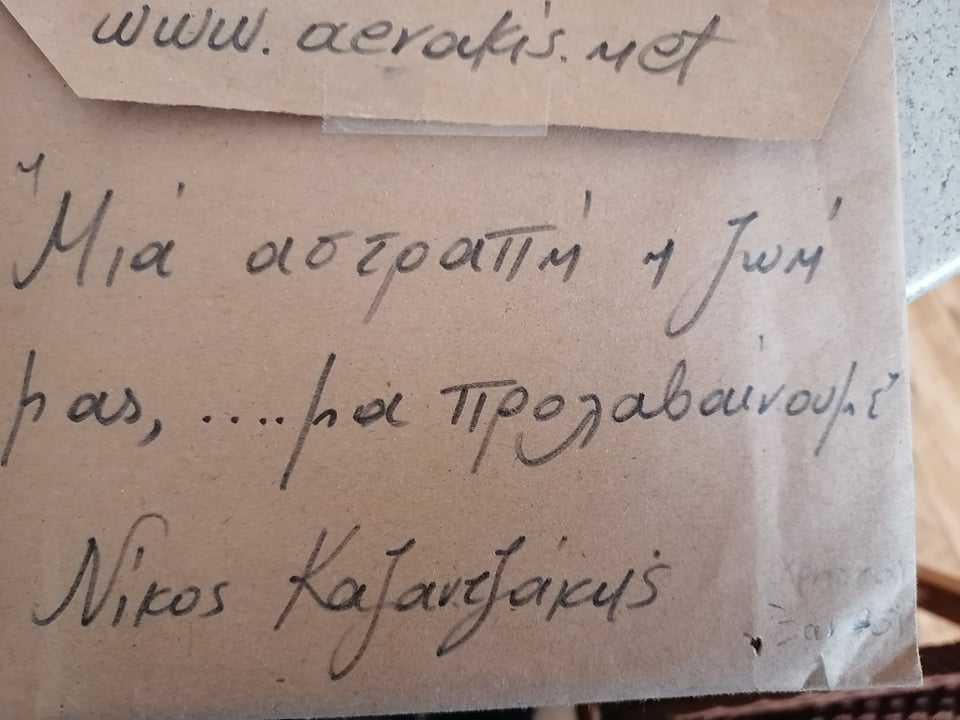 www.aerakis.net
"Μιά αστραπή η ζωή
μας, ....μα προλαβαίνουμε"
Νίκος Καζαντζάκης